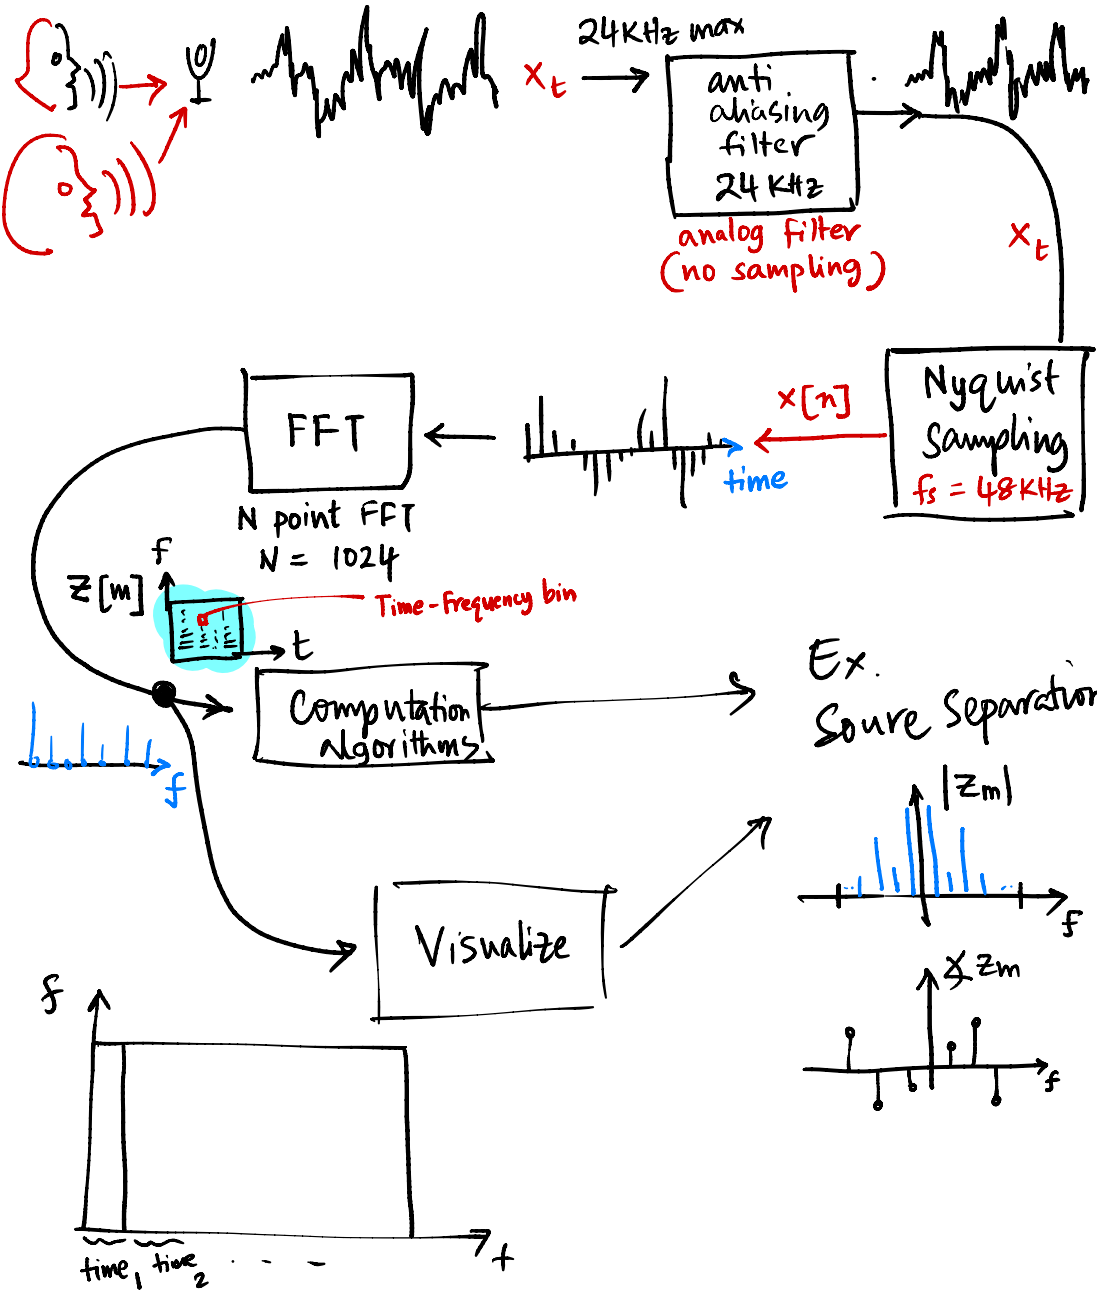 24KHz max
x_t
anti
aliasing
filter
24 KHz
analog filter
(no sampling)
x_t
Nyquist
Sampling
fs = 48KHz
x[n]
time
FFT
N point FFT
N = 1024
f
Z[m]
Time-Frequency bin
t
Computation
algorithms
f
Ex.
Soure Separation
|Zm|
f
Visualize
∡Zm
f
f
t
time1 time2 . . . -